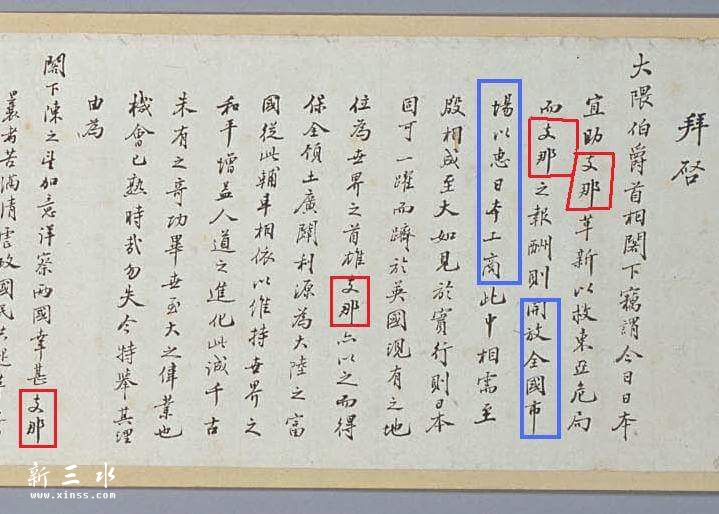 拜啓
大隈伯爵首相閣下竊謂今日日本
宜助支那革新以救東亞危局
而支那之報酬則開放全國市
場以惠日本工商此中相需至
殷相成至大如見於實行則日本
固可一躍而躋於英國現有之地
位為世界之首雄支那亦以之而得
保全領土廣闢利源為大陸之富
國從此輔車相依以維持世界之
和平增益人道之進化此誠千古
未有之奇功畢世至大之偉業也
機會已熟時哉勿失今特舉其理
由為
閣下陳之望加意詳察兩國幸甚支那
曩者苦滿清虐政國民共起革
新三水
www.xinss.com